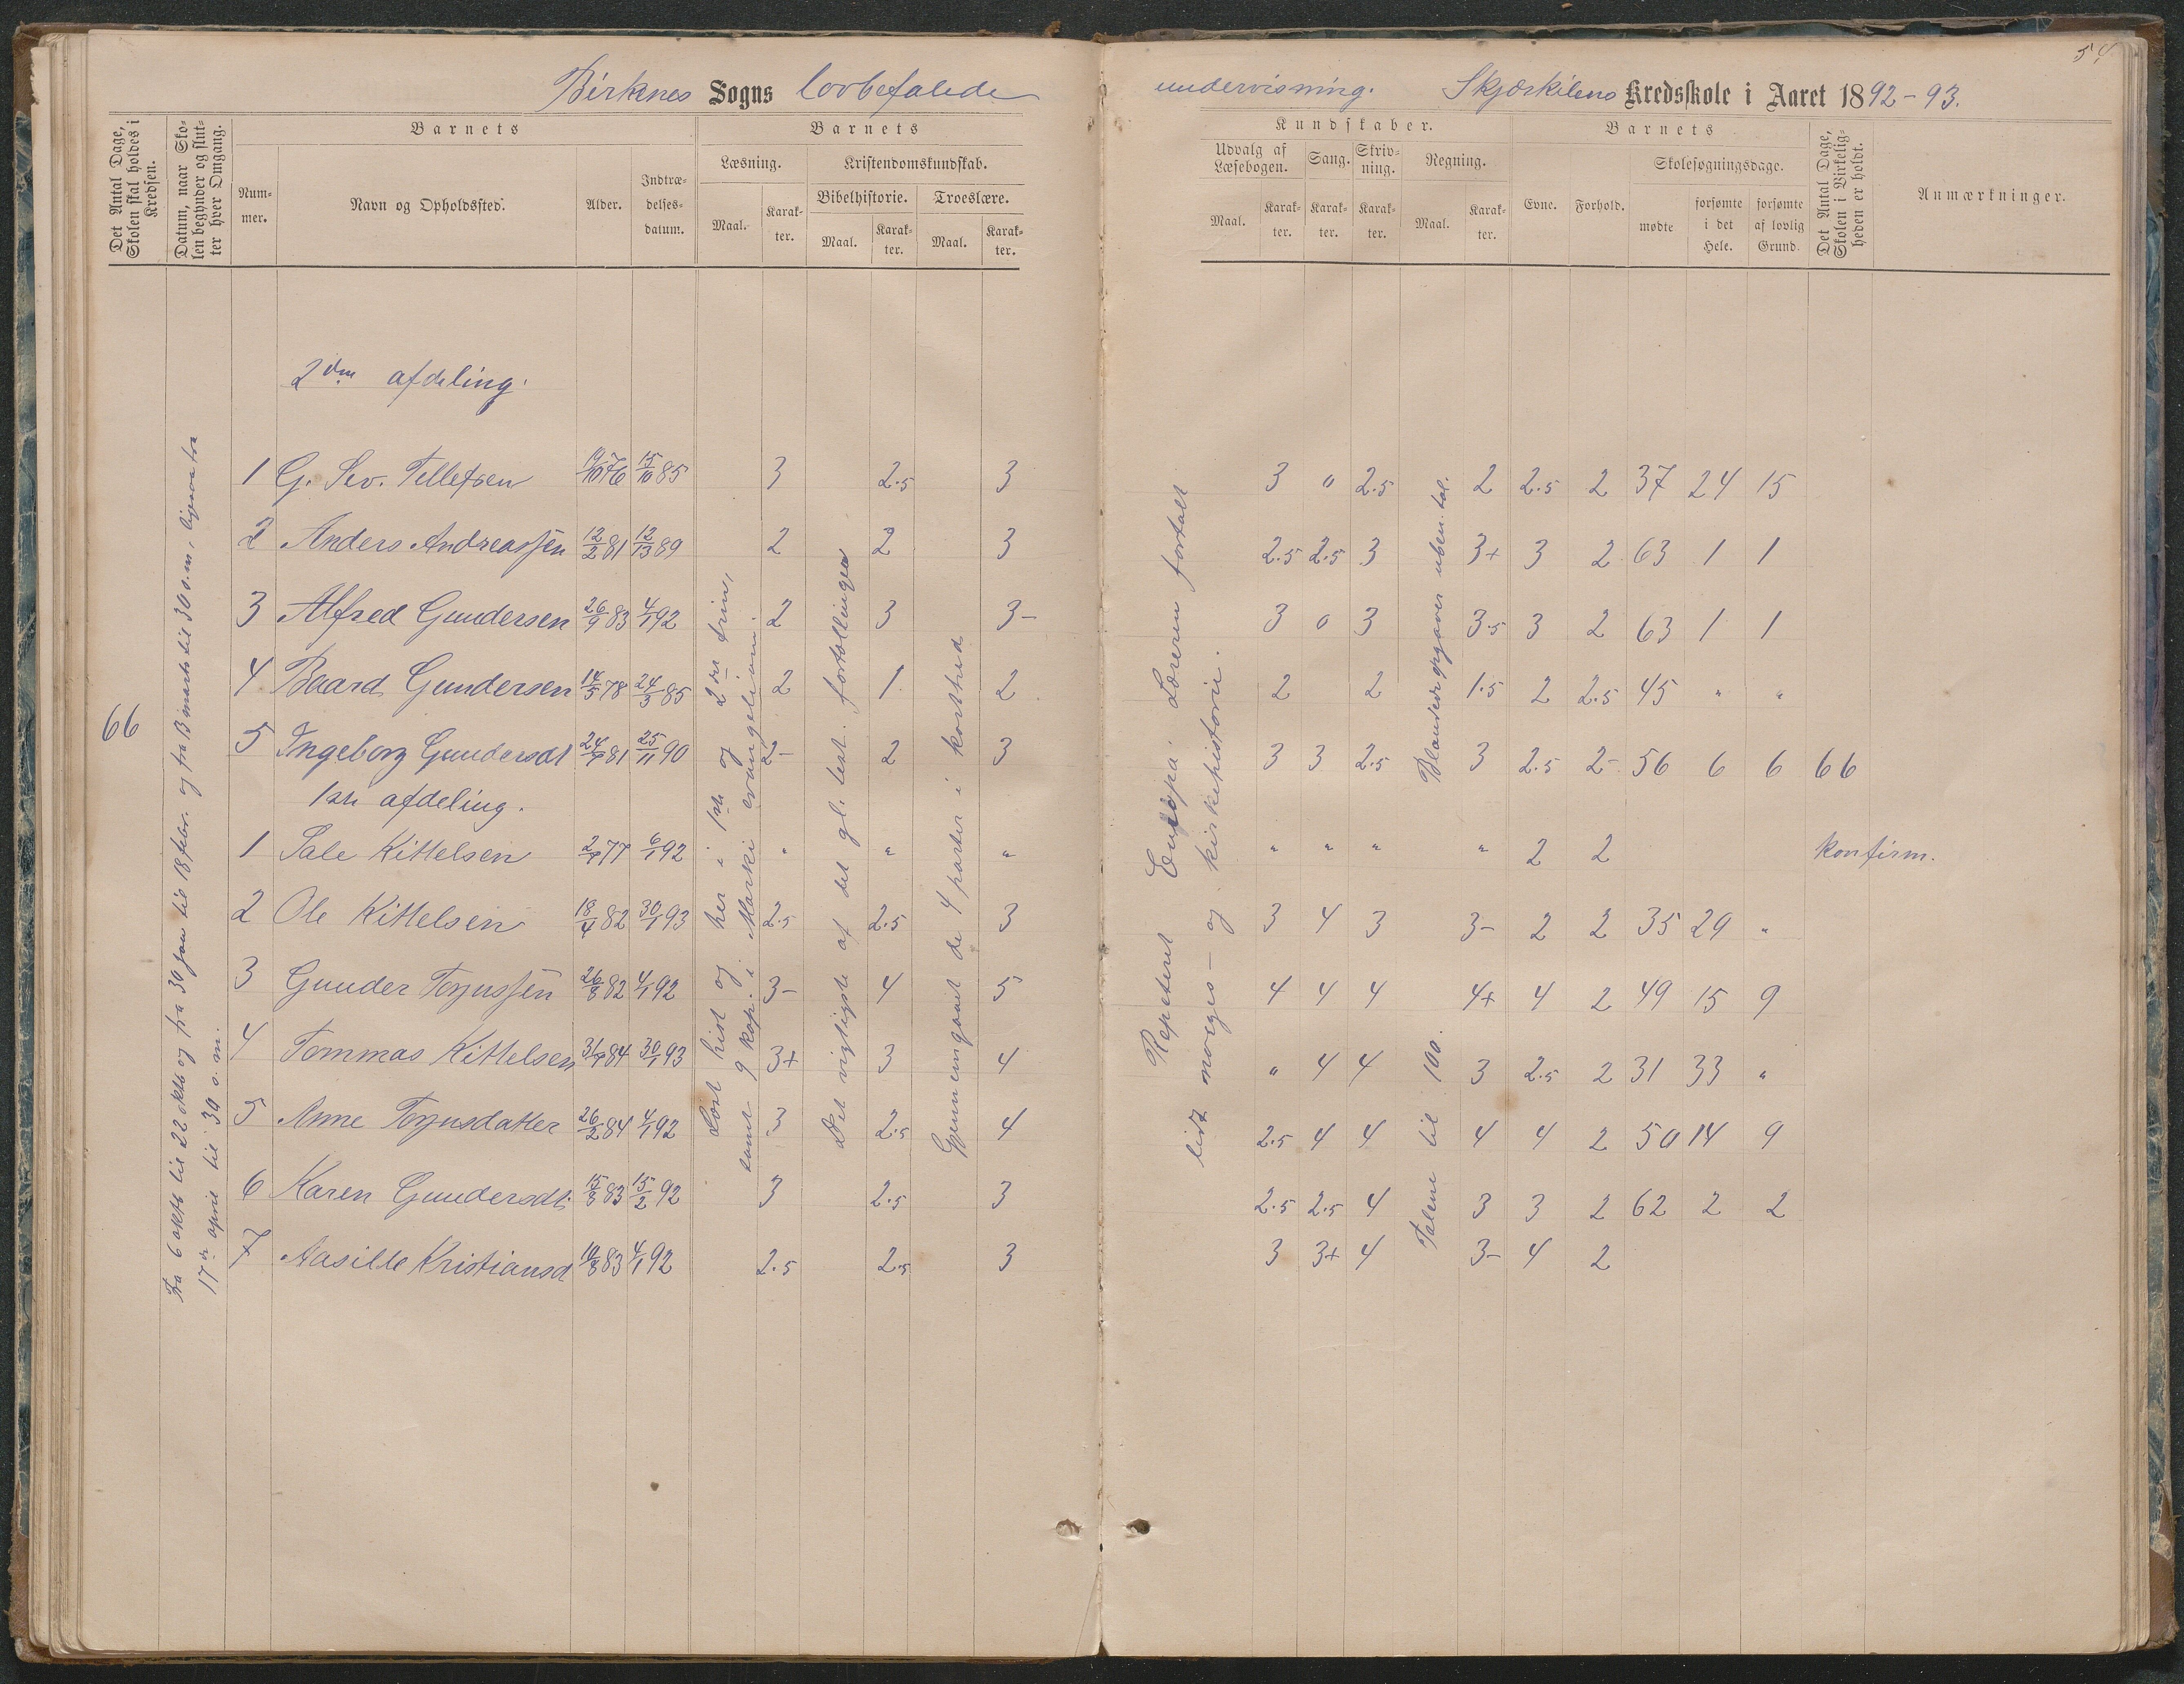 54
Birkenes Sogns lovbefalede undervisning. Skjærkilens Kredsskole i Aaret 1892-93.
Det Antal Dage, Skolen skal holdes i Kredsen.
Datum, naar Skolen begynder og slutter hver Omgang.
Barnets
Nummer.
Navn og Opholdssted.
Alder.
Indtrædelsesdatum.
Barnets
Læsning.
Maal.
Karakter.
Kristendomskundskab.
Bibelhistorie.
Maal.
Karakter.
Troeslære.
Maal.
Karakter.
Kundskaber.
Udvalg af Læsebogen.
Maal.
Karakter.
Sang.
Karakter.
Skrivning.
Karakter.
Regning.
Maal.
Karakter.
Barnets
Evne.
Forhold.
Skolesøgningsdage.
mødte
forsømte i det Hele.
forsømte af lovlig Grund.
Det Antal Dage, Skolen i Virkeligheden er holdt.
Anmærkninger.
66
Fra 6 oktb til 22 oktb og fra 30 jan til 18 febr. og fra 13 marts til 30 s.m, ligesaa fra
17de april til 30 s.m.
Læst hist og her i 1ste og 2det trin,
samt 9 kap. i Marki evangelium.
Det vigtigste af det gl. test. fortællinger
Gjennemgaaet de 4 parter i korthed
Repeteret Europa. Læreren fortalt
lidt norges- og kirkehistorie.
Blandede opgaver uben. tal.
Talene til 100.
2den afdeling.
1 G. Sev. Tellefsen 19/10 76 15/10 85 3 2.5 3 3 " 2.5 2 2.5 2 37 24 15
2 Anders Andreassen 12/2 81 12/13 89 2 2 3 2.5 2.5 3 3+ 3 2 63 1 1
3 Alfred Gundersen 26/9 83 4/1 92 2 3 3- 3 0 3 3.5 3 2 63 1 1
4 Baard Gundersen 14/5 78 24/3 85 2 1 2 2 2 1.5 2 2.5 45 " "
5 Ingeborg Gundersdt 24/9 81 25/11 90 2- 2 3 3 3 2.5 3 2.5 2- 56 6 6 66
1ste afdeling.
1 Sale Kittelsen 2/9 77 6/1 92 " " " " " " " 2 2 konfirm.
2 Ole Kittelsen 18/4 82 30/1 93 2.5 2.5 3 3 4 3 3- 2 2 35 29 "
3 Gunder Torjussen 26/8 82 4/1 92 3- 4 5 4 4 4 4+ 4 2 49 15 9
4 Tommas Kittelsen 31/7 84 30/1 93 3+ 3 4 " 4 4 3 2.5 2 31 33 "
5 Anne Torjusdatter 26/2 84 4/1 92 3 2.5 4 2.5 4 4 4 4 2 50 14 9
6 Karen Gundersdt. 15/8 83 15/2 92 3 2.5 3 2.5 2.5 4 3 3 2 62 2 2
7 Aasille Kristiansd 10/8 83 4/1 92 2.5 2.5 3 3 3+ 4 3- 4 2